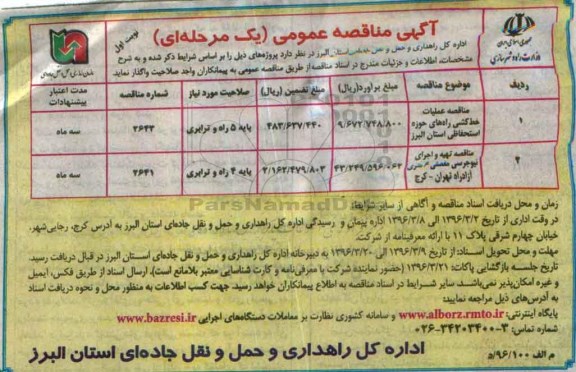 آگهی مناقصه عمومی (یک مرحله‌ای)
نوبت اول
جمهوری اسلامی ایران
وزارت راه و شهرسازی
اداره کل راهداری و حمل و نقل جاده‌ای استان البرز در نظر دارد پروژه‌های ذیل را بر اساس شرایط ذکر شده و به شرح
مشخصات، اطلاعات و جزئیات مندرج در اسناد مناقصه از طریق مناقصه عمومی به پیمانکاران واجد صلاحیت واگذار نماید.
ردیف موضوع مناقصه مبلغ برآورد(ریال) مبلغ تضمین (ریال) صلاحیت مورد نیاز شماره مناقصه مدت اعتبار پیشنهادات
۱ مناقصه عملیات خط‌کشی راه‌های حوزه استحفاظی استان البرز ۹/۶۷۲/۷۴۸/۸۰۰ ۴۸۳/۶۳۷/۴۴۰ پایه ۵ راه و ترابری ۲۶۴۳ سه ماه
۲ مناقصه تهیه و اجرای نیوجرسی مفصلی آزادراه تهران - کرج ۴۳/۲۴۹/۵۹۶/۰۶۳ ۲/۱۶۲/۴۷۹/۸۰۳ پایه ۴ راه و ترابری ۲۶۴۱ سه ماه
ParsNamadData
زمان و محل دریافت اسناد مناقصه و آگاهی از سایر شرایط:
در وقت اداری از تاریخ ۱۳۹۶/۳/۲ الی ۱۳۹۶/۳/۸ اداره پیمان و رسیدگی اداره کل راهداری و حمل و نقل جاده‌ای استان البرز به آدرس کرج، رجایی‌شهر،
خیابان چهارم شرقی پلاک ۱۱ با ارائه معرفینامه از شرکت.
مهلت و محل تحویل اسناد: از تاریخ ۱۳۹۶/۳/۹ الی ۱۳۹۶/۳/۲۰ به دبیرخانه اداره کل راهداری و حمل و نقل جاده‌ای استان البرز در قبال دریافت رسید.
تاریخ جلسه بازگشایی پاکات: ۱۳۹۶/۳/۲۱ (حضور نماینده شرکت با معرفی‌نامه و کارت شناسایی معتبر بلامانع است). ارسال اسناد از طریق فکس، ایمیل
و غیره امکان‌پذیر نمی‌باشد. سایر شرایط در اسناد مناقصه به اطلاع پیمانکاران خواهد رسید. جهت کسب اطلاعات به منظور محل و نحوه دریافت اسناد
به آدرس‌های ذیل مراجعه نمایید:
پایگاه اینترنتی: www.alborz.rmto.ir و سامانه کشوری نظارت بر معاملات دستگاه‌های اجرایی www.bazresi.ir
شماره تماس: ۳-۳۴۲۰۳۴۰۰-۰۲۶
اداره کل راهداری و حمل و نقل جاده‌ای استان البرز
م الف ۹۶/۱۰۰/د